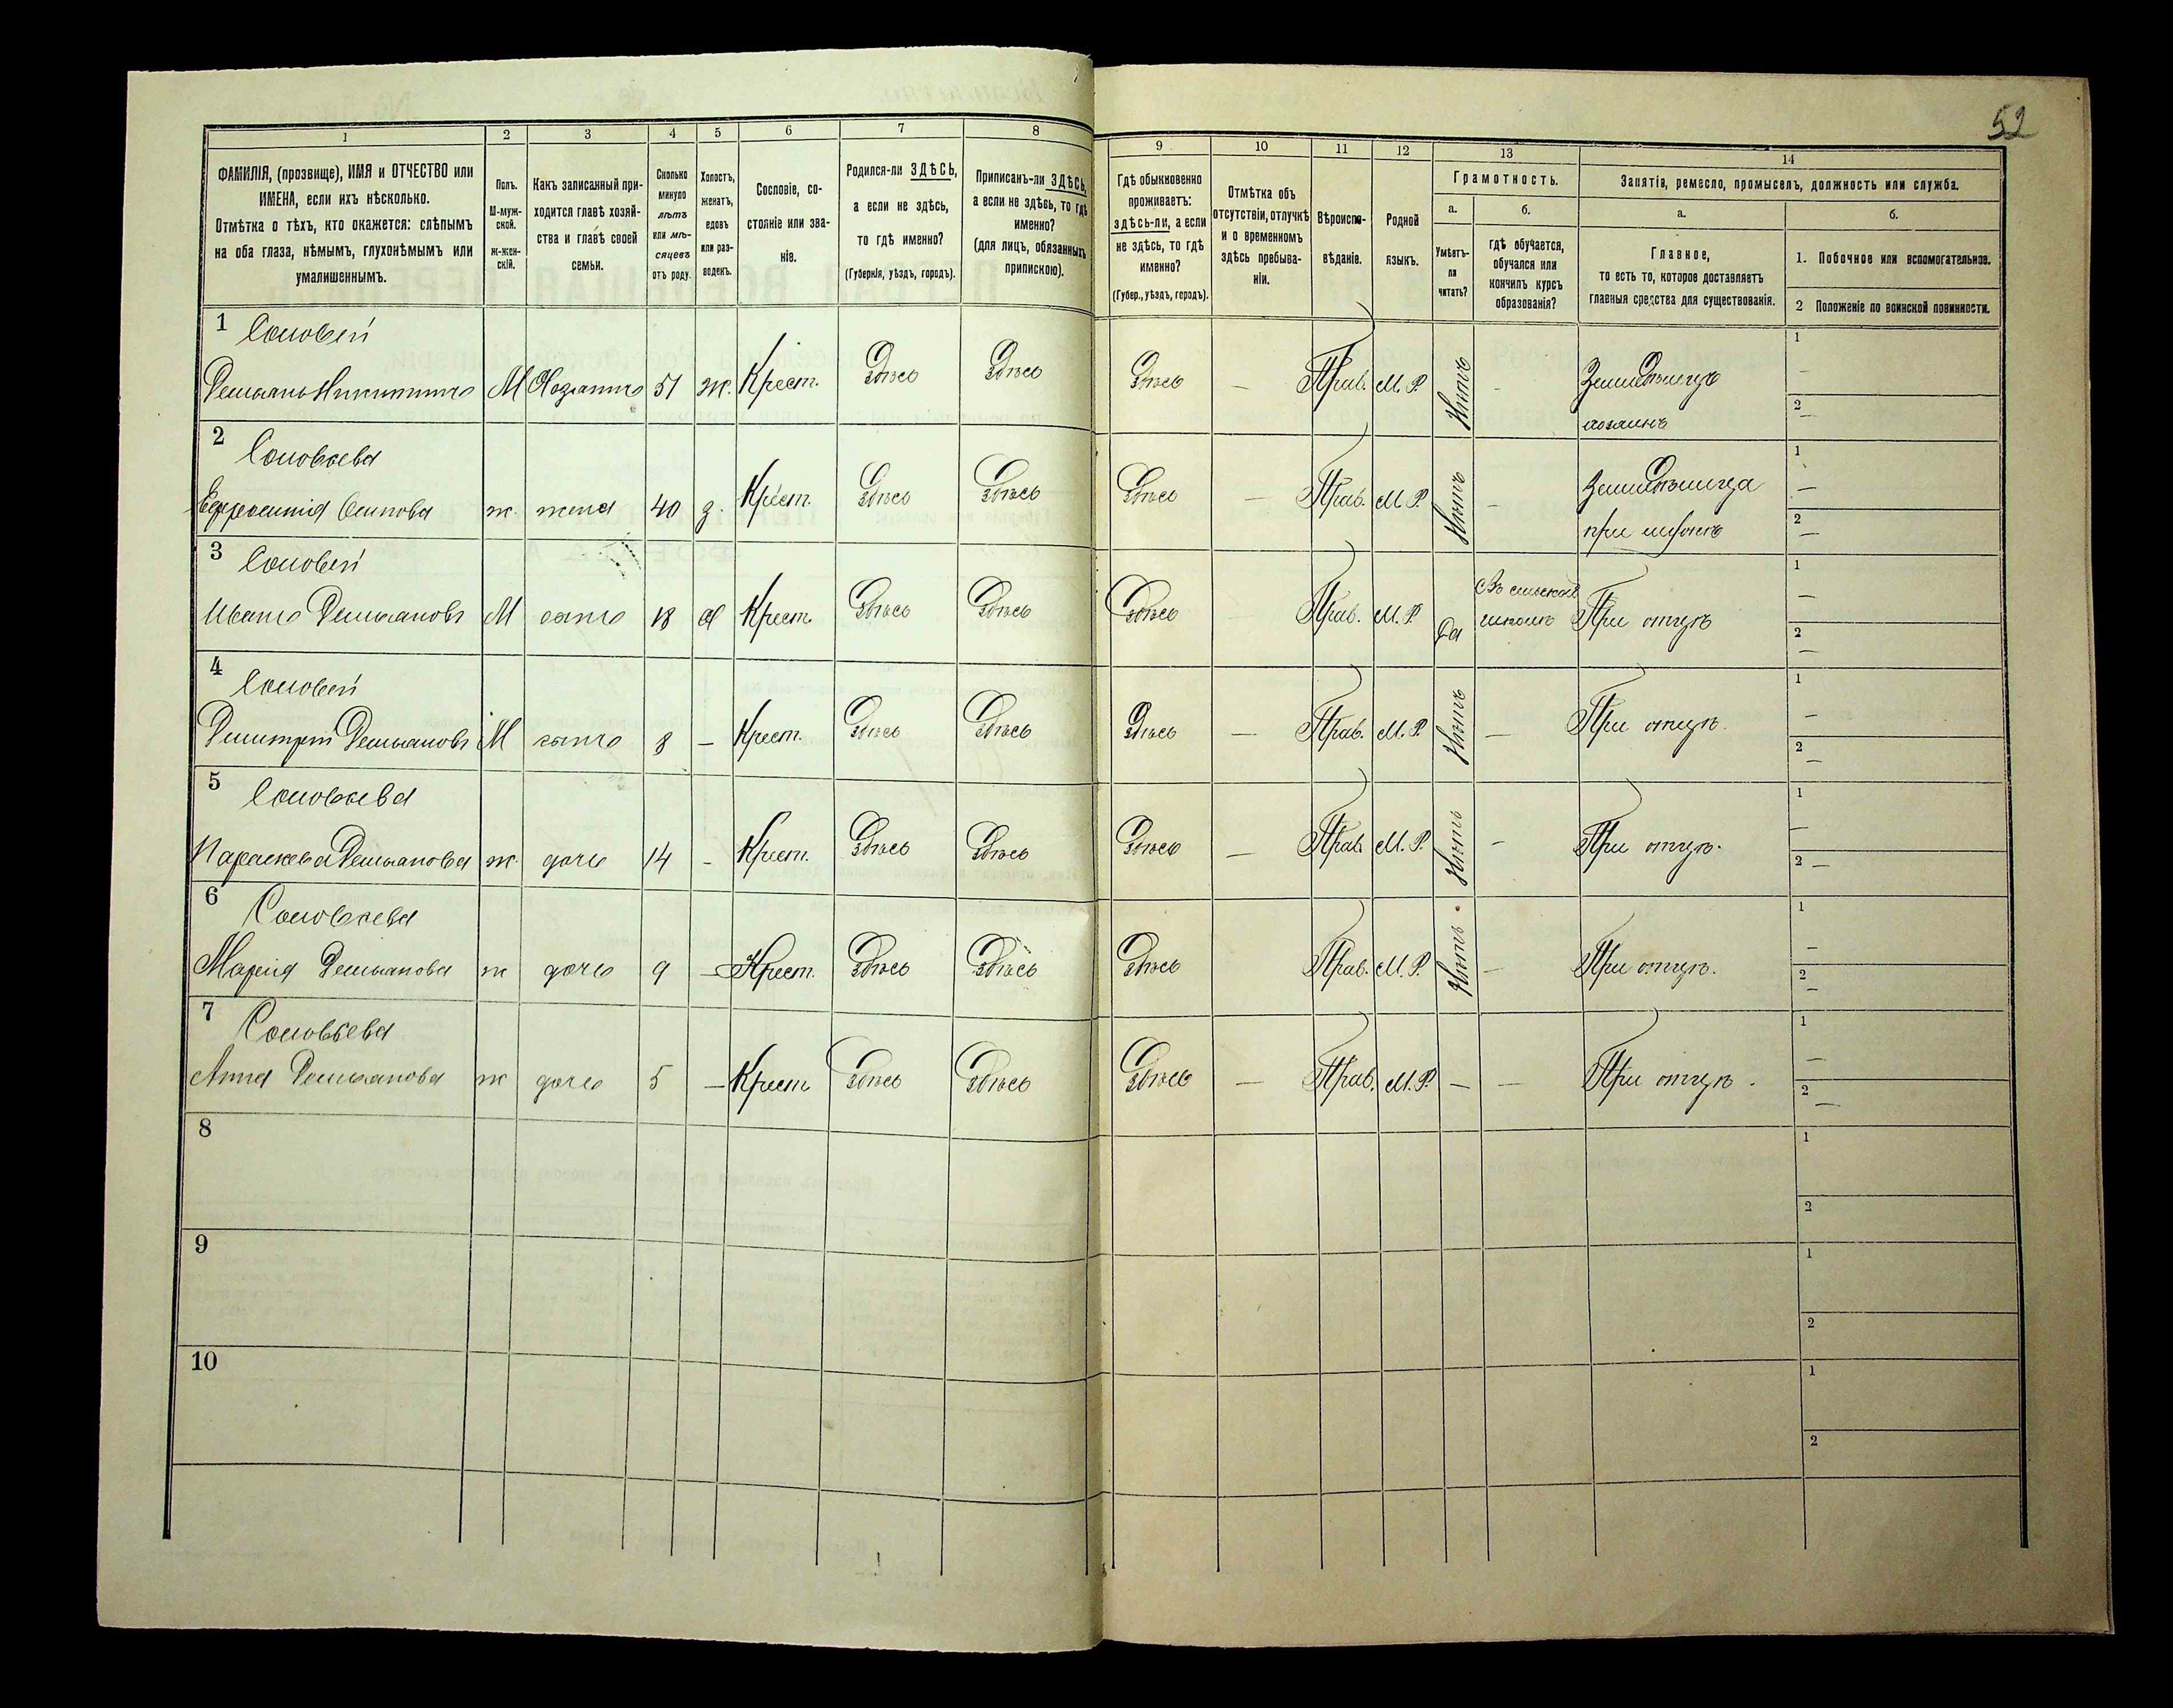 52
1 2 3 4 5 6 7 8 9 10 11 12 13 14
ФАМИЛІЯ, (прозвище), ИМЯ и ОТЧЕСТВО или
ИМЕНА, если ихъ нѣсколько.
Отмѣтка о тѣхъ, кто окажется: слѣпымъ
на оба глаза, нѣмымъ, глухонѣмымъ или
умалишеннымъ.
Полъ.
М-муж-
ской.
Ж-жен-
скій.
Какъ записанный при-
ходится главѣ хозяй-
ства и главѣ своей
семьи.
Сколько
минуло
лѣтъ
или мѣ-
сяцевъ
отъ роду.
Холостъ,
женатъ,
вдовъ
или раз-
веденъ.
Сословіе, со-
стояніе или зва-
ніе.
Родился-ли ЗДѢСЬ,
а если не здѣсь,
то гдѣ именно?
(Губернія, уѣздъ, городъ).
Приписанъ-ли ЗДѢСЬ,
а если не здѣсь, то гдѣ
именно?
(для лицъ, обязанныхъ
припискою).
Гдѣ обыкновенно
проживаетъ:
здѣсь-ли, а если
не здѣсь, то гдѣ
именно?
(Губер., уѣздъ, городъ).
Отмѣтка объ
отсутствіи, отлучкѣ
и о временномъ
здѣсь пребыва-
ніи.
Вѣроиспо-
вѣданіе.
Родной
языкъ.
Грамотность.
а.
Умѣетъ-
ли
читать?
б.
гдѣ обучается,
обучался или
кончилъ курсъ
образованія?
Занятіе, ремесло, промыселъ, должность или служба.
а.
Главное,
то есть то, которое доставляетъ
главныя средства для существованія.
б.
1. Побочное или вспомогательное.
2 Положеніе по воинской повинности.
1 Соловей 1 –
Демьянъ Никитинъ М Хозяинъ 51 ж. Крест. Здѣсь Здѣсь Здѣсь — Прав. М. Р. Нѣтъ - Земледѣлецъ
хозяинъ 2 –
2 Соловьева 1 –
Ефросинія Осипова ж. жена 40 з. Крест. Здѣсь Здѣсь Здѣсь — Прав. М. Р. Нѣтъ - Земледѣлица
при мужѣ 2 –
3 Соловей Въ сельской 1 –
Иванъ Демьяновъ М сынъ 18 х Крест. Здѣсь Здѣсь Здѣсь Прав. М. Р. Да школѣ При отцѣ 2 –
4 Соловей 1 –
Димитрій Демьяновъ М сынъ 8 – Крест. Здѣсь Здѣсь Здѣсь — Прав. М. Р. Нѣтъ — При отцѣ. 2 –
5 Соловьева 1 –
Параскева Демьянова ж. дочь 14 - Крест. Здѣсь Здѣсь Здѣсь — Прав. М. Р. Нѣтъ - При отцѣ. 2 –
6 Соловьева 1 –
Марія Демьянова ж дочь 9 – Крест. Здѣсь Здѣсь Здѣсь Прав. М. Р. Нѣтъ. – При отцѣ. 2 –
7 Соловьева 1 –
Анна Демьянова ж дочь 5 – Крест Здѣсь Здѣсь Здѣсь — Прав. М. Р. – – При отцѣ. 2 –
8 1
2
9 1
2
10 1
2